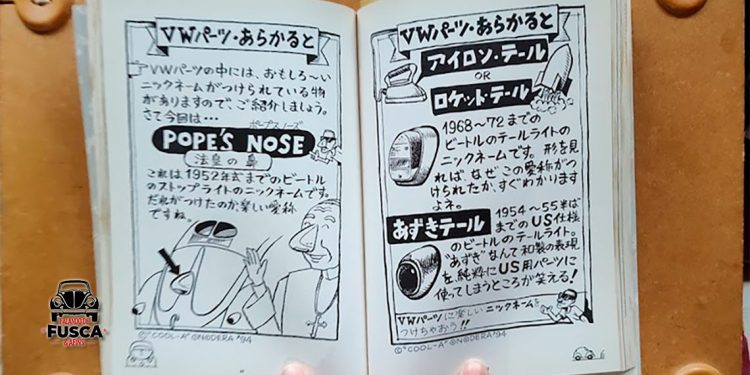 VWパーツ・あらかると
VWパーツの中には、おもしろ〜い
ニックネームがつけられている物
がありますので、ご紹介しましょう。
さて今回は…
ポープスノーズ
POPE'S NOSE
法皇の鼻
これは1952年式までのビートル
のストップライトのニックネームです。
だれがつけたのか楽しい愛称
ですね。
©"COOL-A" ONODERA '94
VWパーツ・あらかると
アイロン・テール
OR
ロケット・テール
1968〜72までの
ビートルのテールライトの
ニックネームです。形を見
れば、なぜこの愛称がつ
けられたか、すぐわかります
よネ。
あずきテール
1954〜55半ば
までのUS仕様
のビートルのテールライト。
"あずき"なんて和製の表現
を、純粋にUS用パーツに
使ってしまうところが笑える!
VWパーツに楽しいニックネームを
つけちゃおう!!
©"COOL-A" ONODERA '94
FUSCA